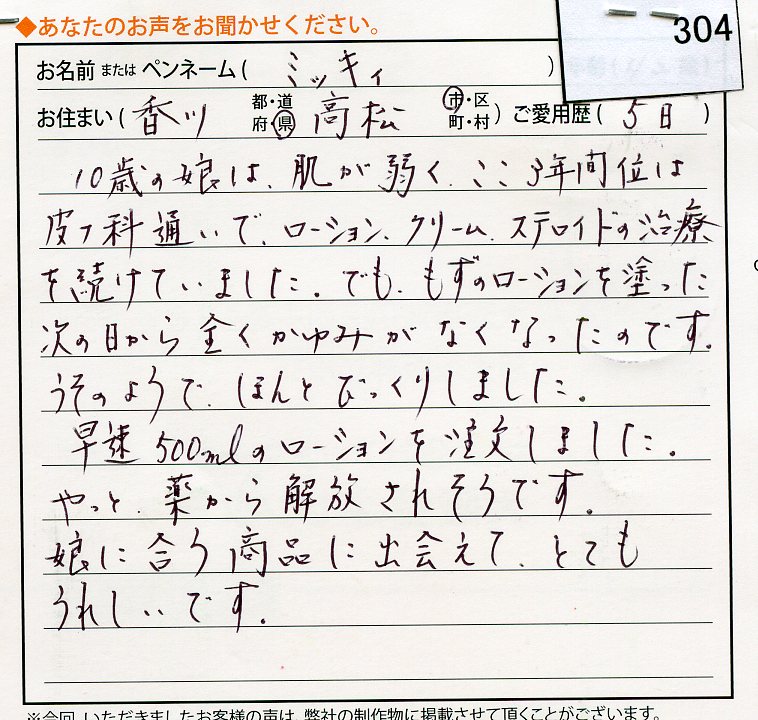 ◆あなたのお声をお聞かせください。
304
お名前 または ペンネーム( ミッキィ )
お住まい( 香川 都・道 府・県 高松 市・区 町・村 ) ご愛用歴( 5日 )
10歳の娘は、肌が弱く、ここ3年間位は
皮フ科通いで、ローション、クリーム、ステロイドの治療
を続けていました。でも、もずのローションを塗った
次の日から全くかゆみがなくなったのです。
うそのようで、ほんとびっくりしました。
早速500mlのローションを注文しました。
やっと、薬から解放されそうです。
娘に合う商品に出会えて、とても
うれしいです。
※今回、いただきましたお客様の声は、弊社の制作物に掲載させて頂くことがございます。